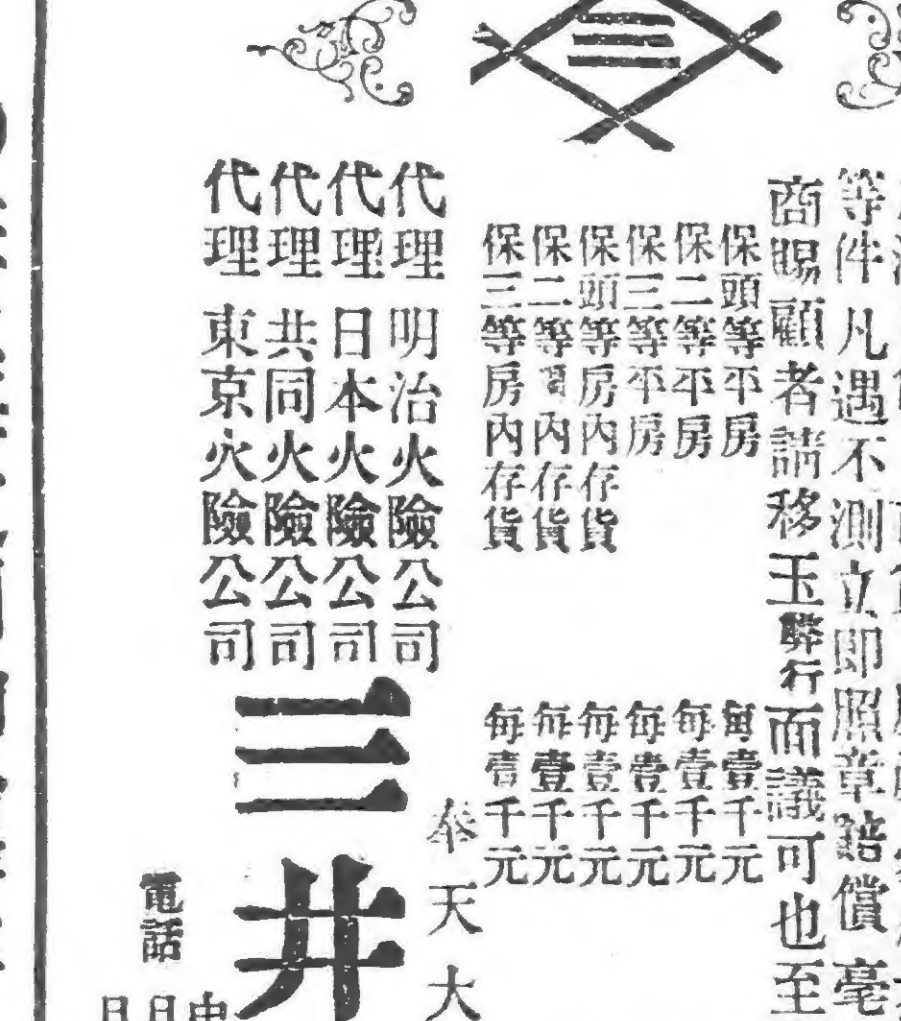 等件凡遇不測立即照章賠償毫
商賜顧者請移玉驊行面議可也至
保頭等平房 每壹千元
保二等平房 每壹千元
保三等平房 每壹千元
保頭等房內存貨 每壹千元
保二等房內存貨 每壹千元
保三等房內存貨 每壹千元
奉天大
代理 明治火險公司
代理 日本火險公司
代理 共同火險公司
代理 東京火險公司
三井
電話